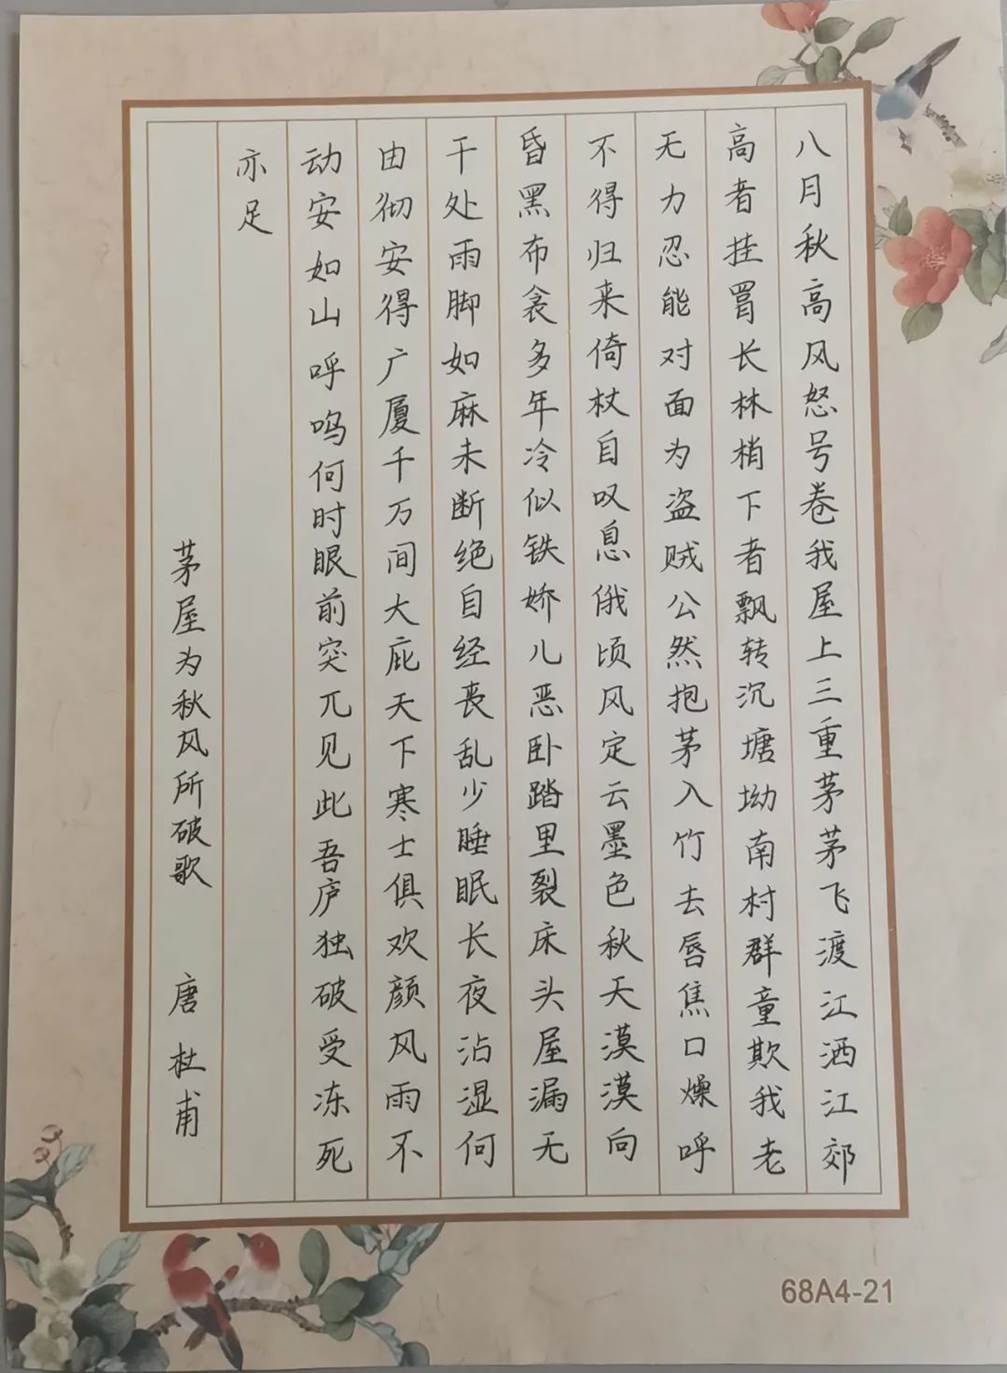 八月秋高风怒号卷我屋上三重茅茅飞渡江洒江郊
高者挂罥长林梢下者飘转沉塘坳南村群童欺我老
无力忍能对面为盗贼公然抱茅入竹去唇焦口燥呼
不得归来倚杖自叹息俄顷风定云墨色秋天漠漠向
昏黑布衾多年冷似铁娇儿恶卧踏里裂床头屋漏无
干处雨脚如麻未断绝自经丧乱少睡眠长夜沾湿何
由彻安得广厦千万间大庇天下寒士俱欢颜风雨不
动安如山呼呜何时眼前突兀见此吾庐独破受冻死
亦足
茅屋为秋风所破歌 唐 杜甫
68A4-21